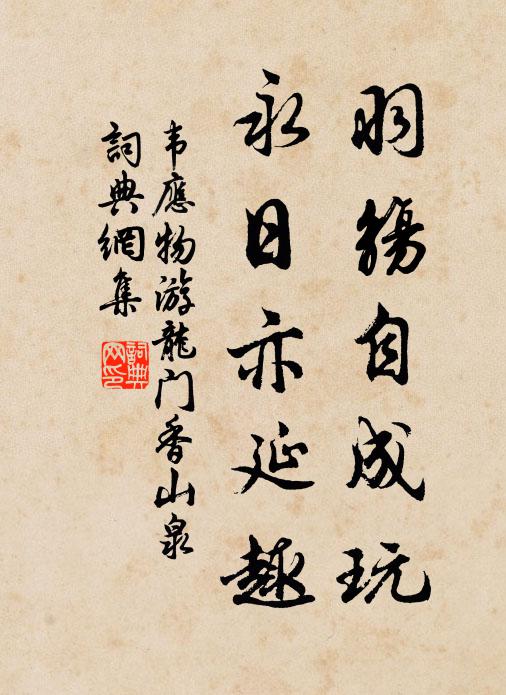 羽觴自成玩
永日亦延趣
韦應物游龍门香山泉
詞典網集
詞典网印